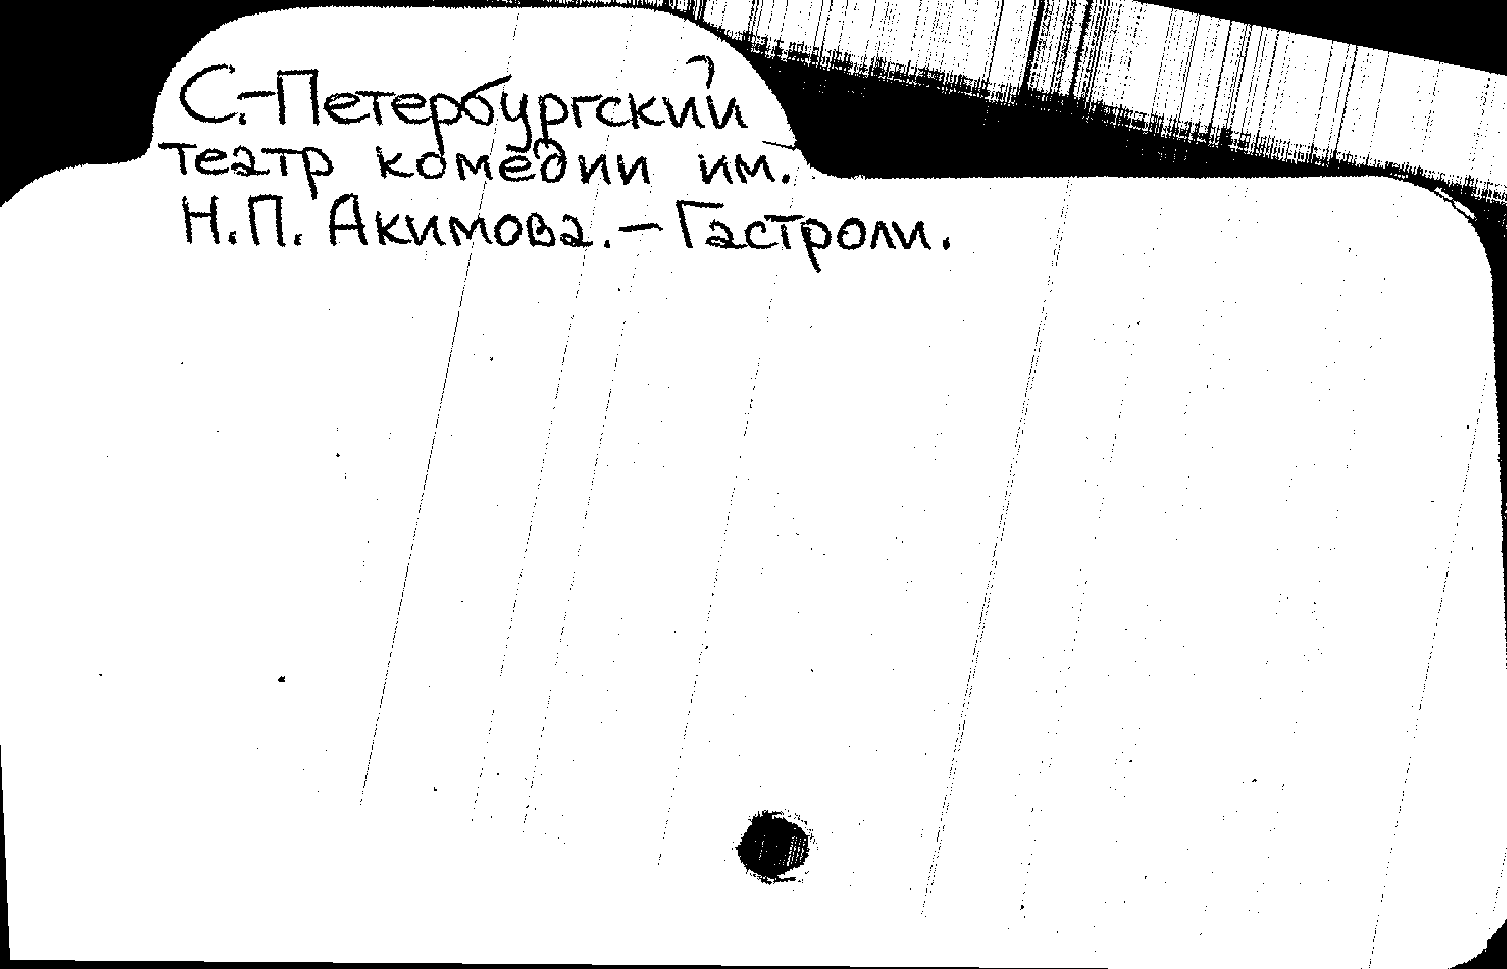 С.-Петербургский
театр комедии им.
Н.П. Акимова.-Гастроли.